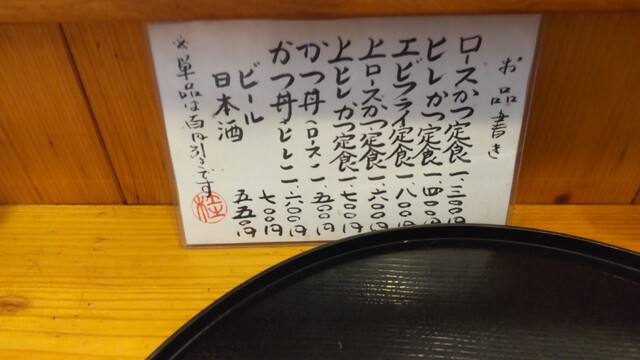 お品書き
ロースかつ定食 一.三〇〇円
ヒレかつ定食 一.四〇〇円
エビフライ定食 一.八〇〇円
上ロースかつ定食 一.六〇〇円
上ヒレかつ定食 一.七〇〇円
かつ丼(ロース) 一.五〇〇円
かつ丼(ヒレ) 一.六〇〇円
ビール 七〇〇円
日本酒 五五〇円
※単品は百円引きです